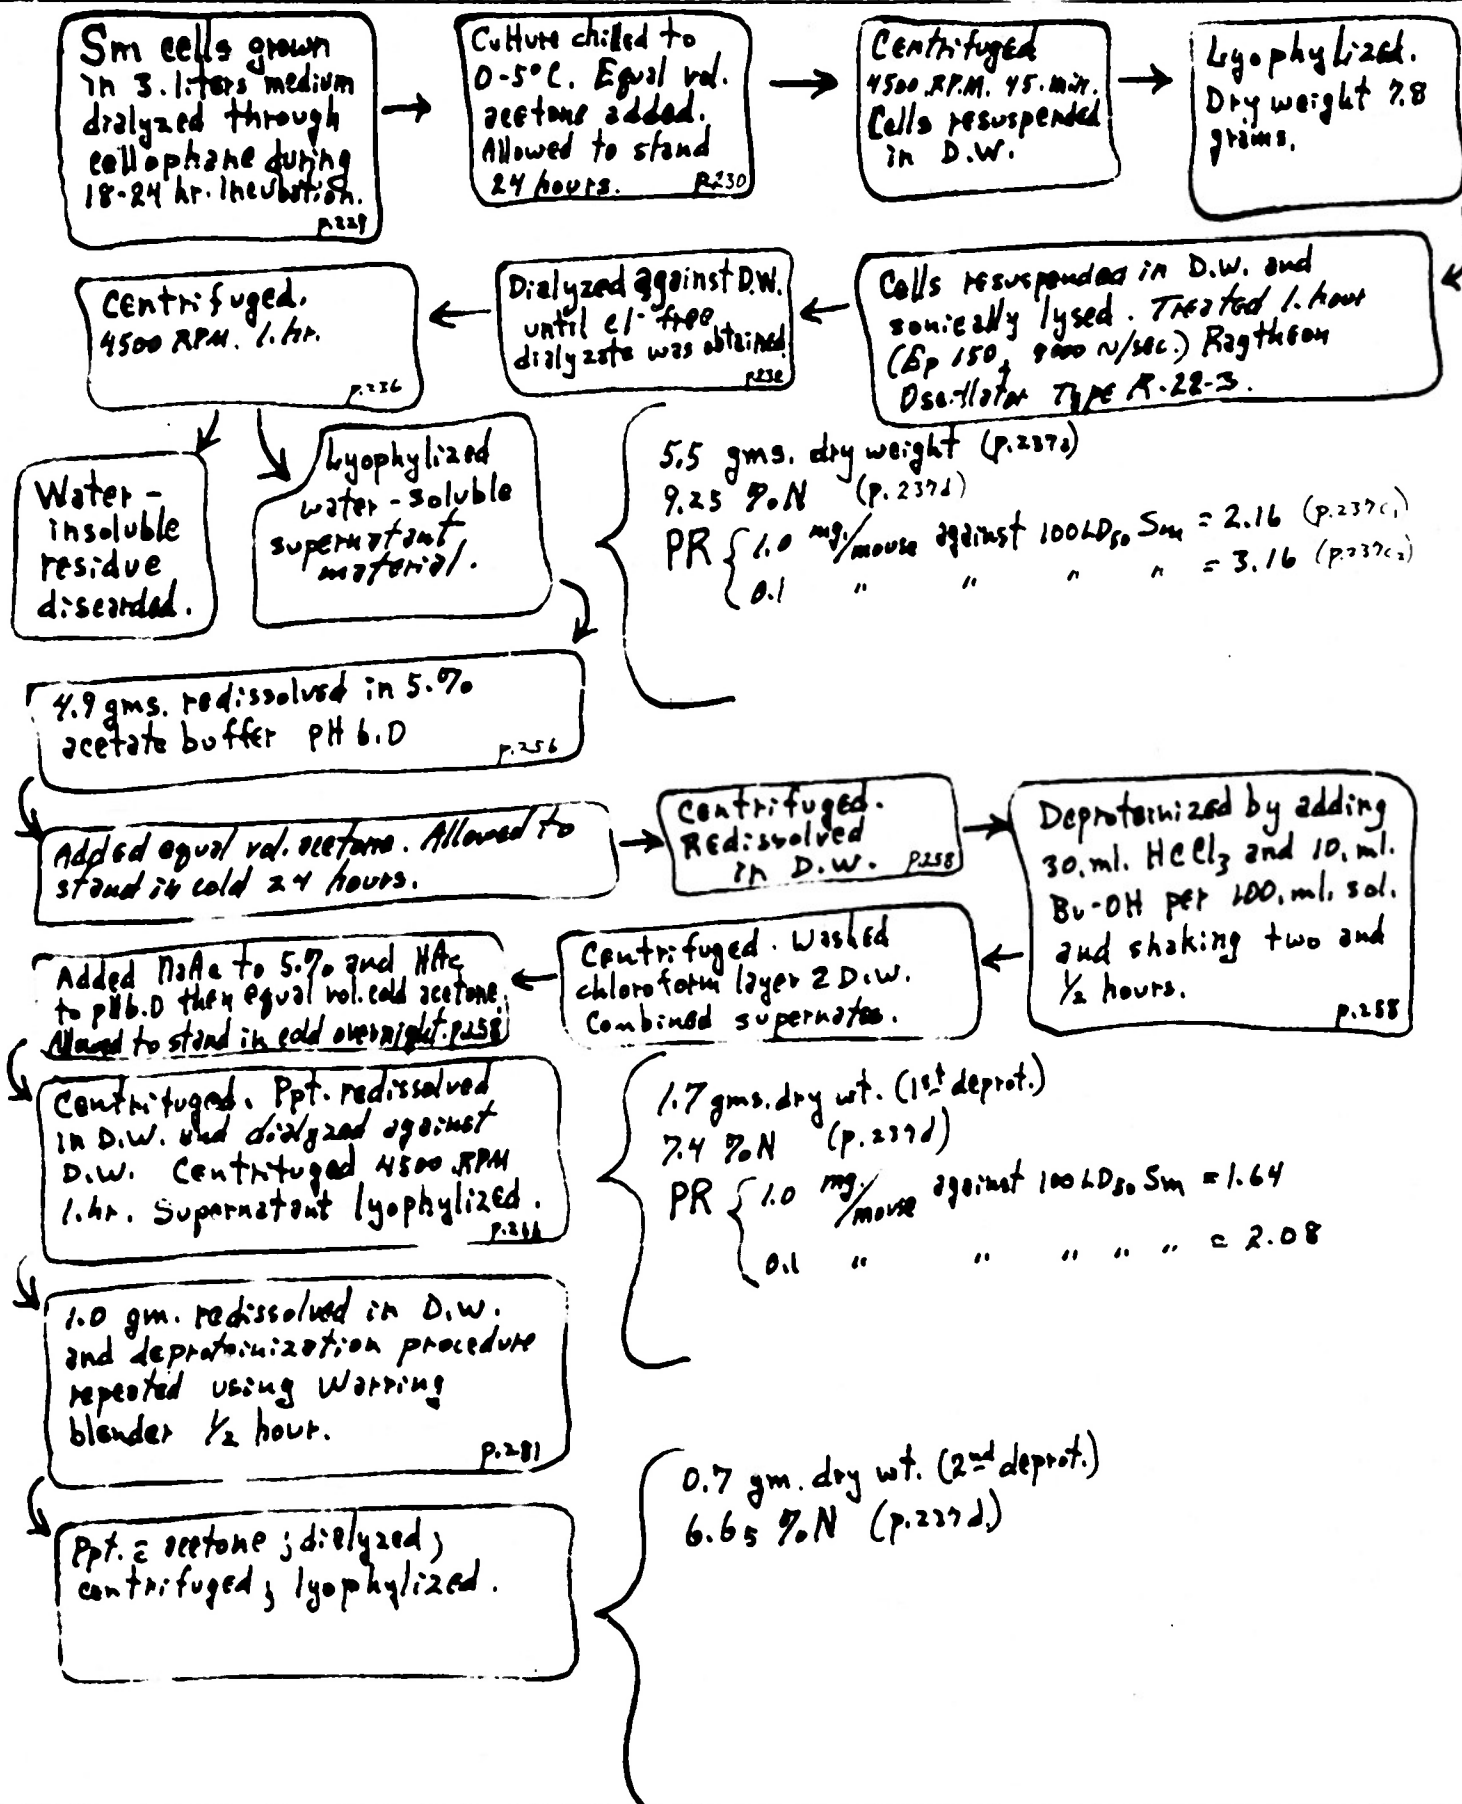 Sm cells grown
in 3. liters medium
dialyzed through
cellophane during
18-24 hr. incubation.
p.229
Culture chilled to
0-5°C. Equal vol.
acetone added.
Allowed to stand
24 hours. p.230
Centrifuged
4500 R.P.M. 45. min.
Cells resuspended
in D.W.
Lyophylized.
Dry weight 7.8
grams.
Cells resuspended in D.W. and
sonically lysed. Treated 1. hour
(Ep 150, 9000 ~/sec.) Raytheon
Oscillator Type R-22-3.
Dialyzed against D.W.
until cl- free
dialyzate was obtained
p.232
Centrifuged.
4500 RPM. 1. hr.
p.236
Water-
insoluble
residue
discarded.
Lyophylized
water-soluble
supernatant
material.
5.5 gms. dry weight (p.237a)
9.25 %N (p.237d)
PR { 1.0 mg./mouse against 100 LD50 Sm = 2.16 (p.237c1)
0.1 " " " " = 3.16 (p.237c2)
4.9 gms. redissolved in 5.%
acetate buffer pH 6.0
p.256
Added equal vol. acetone. Allowed to
stand in cold 24 hours.
Centrifuged.
Redissolved
in D.W. p.258
Deproteinized by adding
30. ml. HCCl3 and 10. ml.
Bu-OH per 100. ml. sol.
and shaking two and
1/2 hours.
p.258
Centrifuged. Washed
chloroform layer 2 D.W.
Combined supernates.
Added NaAc to 5.% and HAc
to pH 6.0 then equal vol. cold acetone.
Allowed to stand in cold overnight. p.258
Centrifuged. Ppt. redissolved
in D.W. and dialyzed against
D.W. Centrifuged 4500 RPM
1. hr. Supernatant lyophylized.
1.7 gms. dry wt. (1st deprot.)
7.4 %N (p.237d)
PR { 1.0 mg./mouse against 100 LD50 Sm = 1.64
0.1 " " " " " = 2.08
1.0 gm. redissolved in D.W.
and deproteinization procedure
repeated using Warring
blender 1/2 hour.
p.281
Ppt. c̄ acetone; dialyzed;
centrifuged; lyophylized.
0.7 gm. dry wt. (2nd deprot.)
6.65 %N (p.237d.)